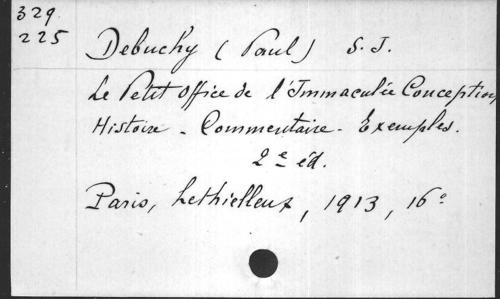 329
225
Debuchy (Paul) S. J.
Le Petit Office de l'Immaculée Conception,
Histoire - Commentaire - Exemples.
2e éd.
Paris, Lethielleux, 1913, 16°